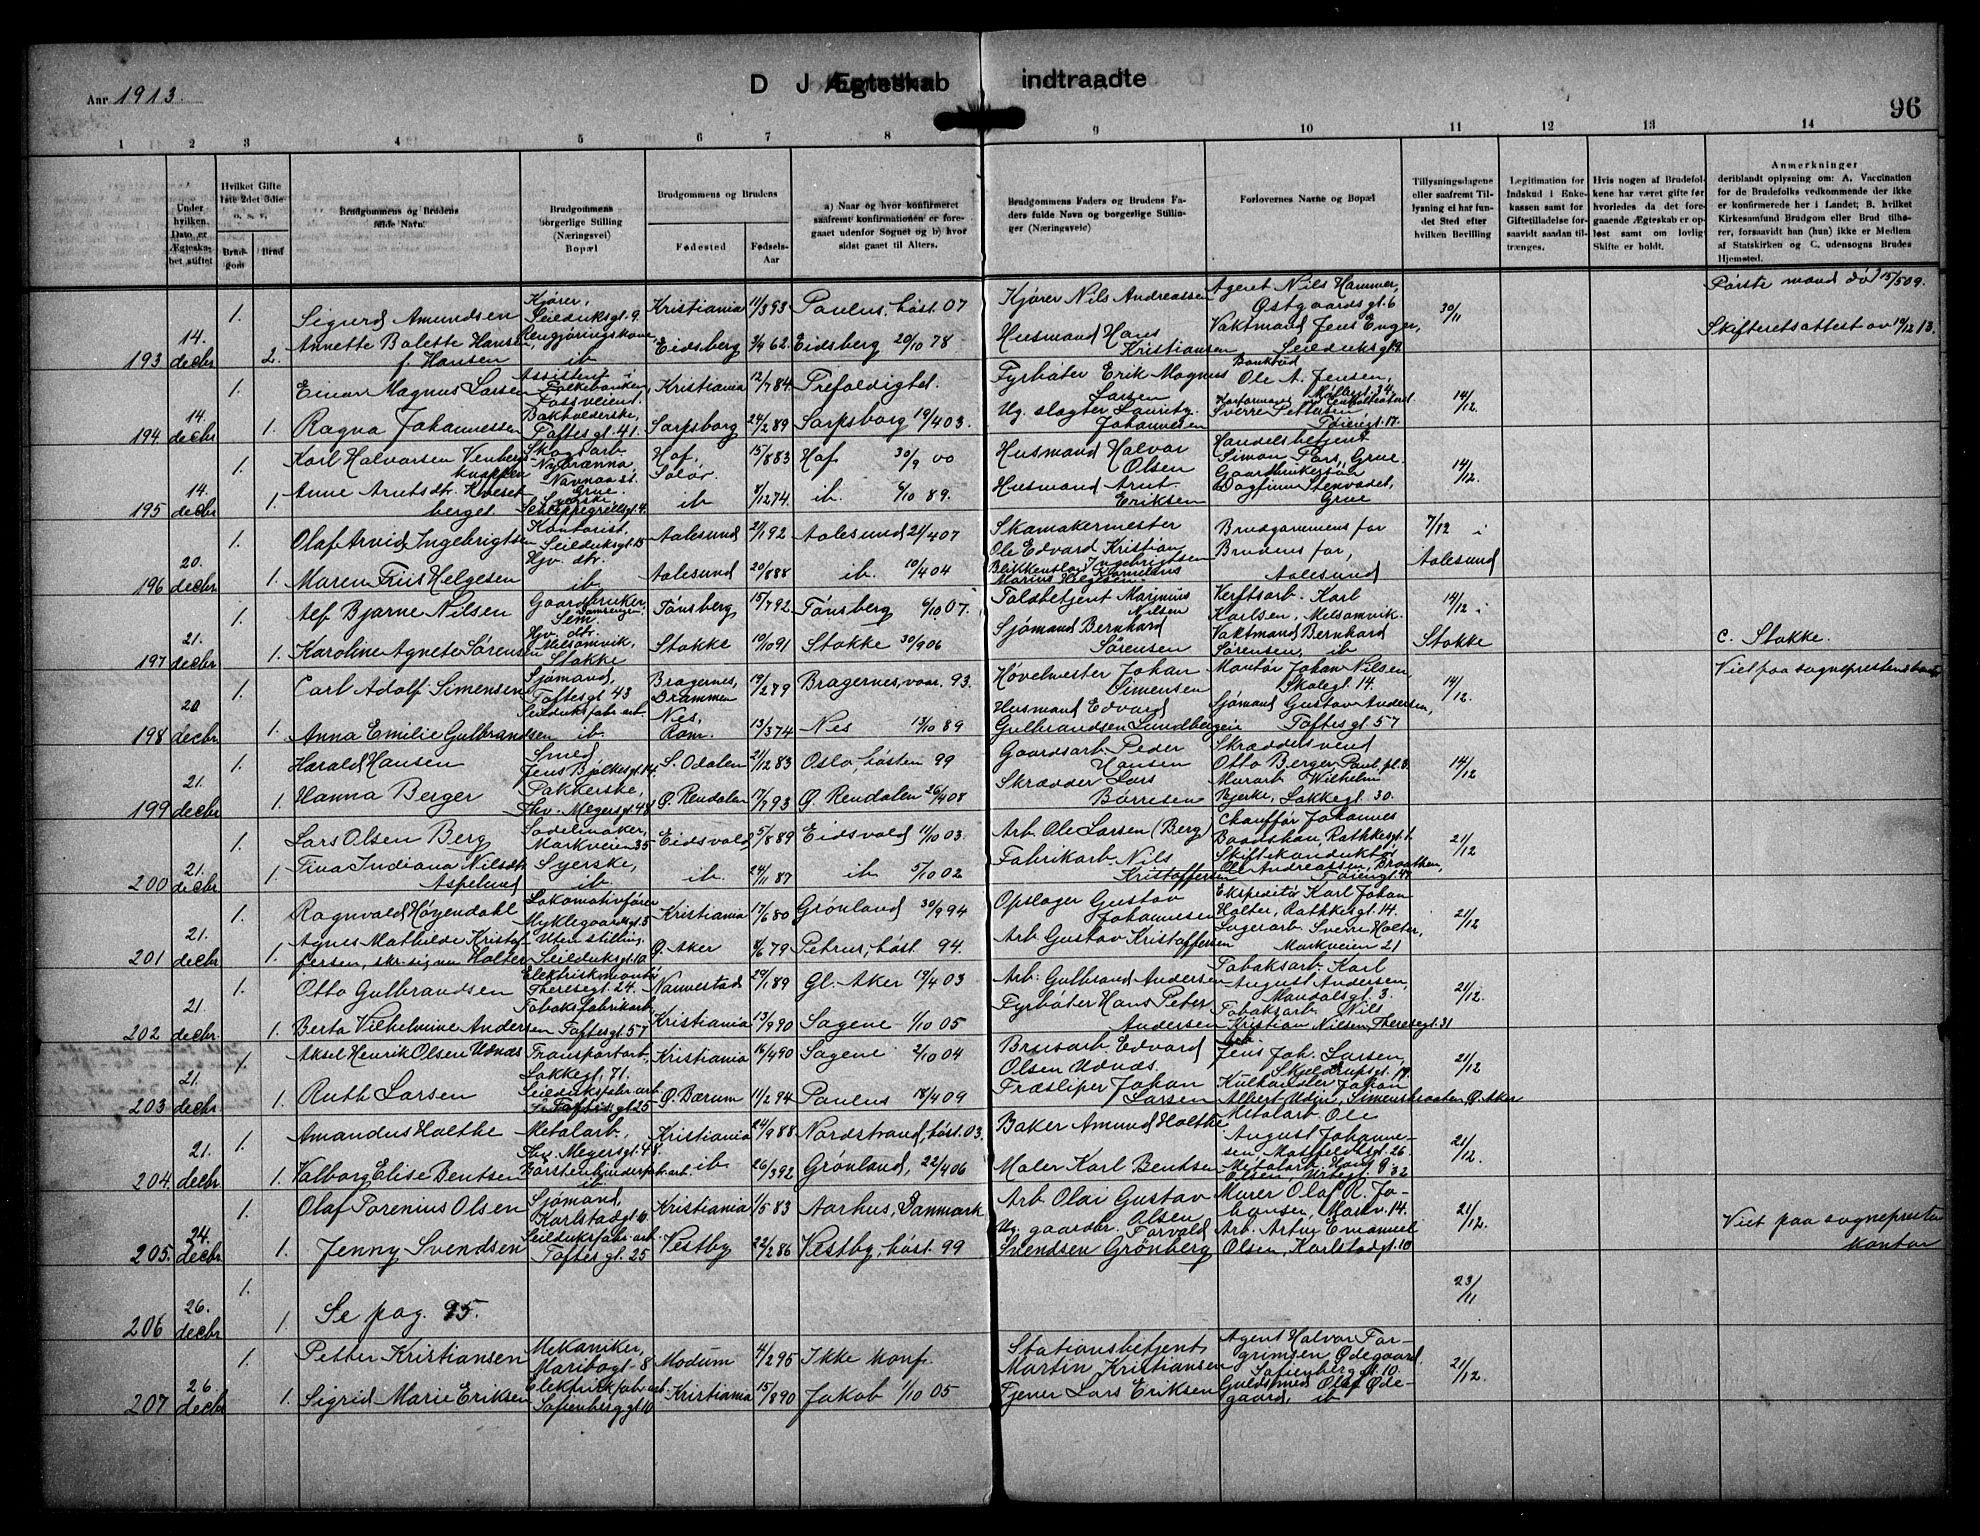 Aar 1913.
D J Ægteskab indtraadte
96
1 2 3 4 5 6 7 8 9 10 11 12 13 14
Under hvilken Dato er Ægteskabet stiftet
Hvilket Gifte 1ste 2det 3die o. s. v.
Brudgom
Brud
Brudgommens og Brudens fulde Navn.
Brudgommens borgerlige Stilling (Næringsvei) Bopæl
Brudgommens og Brudens
Fødested
Fødsels-Aar
a) Naar og hvor konfirmeret saafremt konfirmationen er foregaaet udenfor Sognet og b) hvor sidst gaaet til Alters.
Brudgommens Faders og Brudens Faders fulde Navn og borgerlige Stillinger (Næringsveie)
Forlovernes Navne og Bopæl
Tillysningsdagene eller saafremt Tillysning ei har fundet Sted efter hvilken Bevilling
Legitimation for Indskud i Enkekassen samt for Giftetilladelse forsaavidt saadan tiltrænges.
Hvis nogen af Brudefolkene har været gifte før hvorledes da det foregaaende Ægteskab er opløst samt om lovlig Skifte er holdt.
Anmerkninger
deriblandt oplysning om: A. Vaccination for de Brudefolks vedkommende der ikke er konfirmerede her i Landet; B. hvilket Kirkesamfund Brudgom eller Brud tilhører, forsaavidt han (hun) ikke er Medlem af Statskirken og C. udensogns Brudes Hjemsted.
193 14. decbr 1. Sigurd Amundsen Kjører, Seilduksgt. 9. Kristiania 11/3 93 Paulus, høst. 07 Kjører Nils Andreassen Agent Nils Hammer, Østgaardsgt. 6 30/11 Første mand død 15/5 09.
2. Annette Bolette Hansen f. Hansen Rengjøringskone ib Eidsberg 3/4 62. Eidsberg 20/10 78 Husmand Hans Kristiansen Vaktmand Jens Enger, Seilduksgt. 9 Skifteretsattest av 10/12 13.
194 14. decbr 1. Einar Magnus Larsen Assistent i Folkebanken, Fossveien 1. Kristiania 12/7 84. Trefoldighet. Fyrbøter Erik Magnus Larsen Bankbud Ole A. Jensen, Møllergt. 34 14/12.
1. Ragna Johannessen Bakholderske, Toftesgt. 41. Sarpsborg 24/2 89 Sarpsborg 19/4 03. Ug. slagter Lauritz Johannesen Sverre Pettersen, Tøiengt. 17.
195 14. decbr 1. Karl Halvorsen Skogsarb. Hof, Solør. 15/8 83 Hof 30/9 00 Husmand Halvor Olsen Handelsbetjent Simon Fors, Grue. 14/12.
1. Anne Arntsdtr. Kveset berget. Syerske ib 8/12 74 ib. 6/10 89. Husmand Arnt Eriksen Gaardbrukersøn Dagfinn Stenvadet, Grue
196 20. decbr 1. Olaf Arvid Ingebrigtsen Kontorist, Seilduksgt. 15 Aalesund 21/1 92 Aalesund 21/4 07 Skomakermester Ole Edvard Kristian Ingebrigtsen Brudgommens far 7/12 i
1. Maren Friis Helgesen Hjv. dtr. ib. Aalesund 20/8 88 ib. 10/4 04 Marius Helgesen. Brudens far, Aalesund Aalesund
197 21. decbr 1. Alf Bjarne Nilsen Gaardbruker Sem. Tønsberg 15/7 92 Tønsberg 6/10 07. Toldbetjent Marinius Nilsen Verftsarb. Karl Karlsen, Melsomvik. 14/12 i
1. Karoline Agnete Sørensen Hjv. dtr. Melsomvik, Stokke Stokke 10/10 91 Stokke 30/9 06 Sjømand Bernhard Sørensen Vaktmand Bernhard Sørensen, ib Stokke C. Stokke.
198 20 decbr 1. Carl Adolf Simensen Sjømand, Toftesgt. 43 Bragernes, Drammen 19/2 79 Bragernes, vaar. 93. Hovelmester Johan Simensen Montør Johan Nilsen, Skolegt. 14. 14/12. Viet paa sogneprestens kontor
1. Anna Emilie Gulbrandsen Seilduksfabr. arb. ib Nes, Rom. 13/3 74 Nes 13/10 89 Husmand Edvard Gulbrandsen Lundbergeie Sjømand Gustav Andersen, Toftesgt. 57
199 21. decbr 1. Harald Hansen Smed, Jens Bjelkesgt. 14. S. Odalen 21/12 83 Oslo, høsten 99 Gaardsarb. Peder Hansen Skræddersvend Otto Berger, Paul pl. 3. 14/12
1. Hanna Berger Pakkerske, Thv. Meyersgt. 48 Ø. Rendalen 17/7 93 Ø. Rendalen 26/4 08 Skrædder Lars Børresen Murarb. Wilhelm Bjerke, Lakkegt. 30.
200 21. decbr 1. Lars Olsen Berg Sadelmaker, Markveien 35 Eidsvold 5/8 89 Eidsvold 11/10 03. Arb. Ole Larsen (Berg) Chauffør Johannes Baanshan, Rathkesgt. 1. 21/12
1. Tina Indiana Nilsdtr. Aspelund Syerske, ib. ib. 24/11 87 ib 5/10 02 Fabrikarb. Nils Kristoffersen Skiftekonduktør Ole Andreassen, Braathen, Tøiengt. 47
201 21. decbr 1. Ragnvald Høyendahl Lokomotivfører Nyklegaardsgt. 5 Kristiania 17/6 80 Grønland 30/9 94 Opslager Gustav Johannesen Ekspeditør Karl Johan Holter, Rathkesgt. 14. 21/12
1. Agnes Mathilde Kristoffersen, skr. sig nu Holter Uten stilling. Seilduksgt. 10 Ø. Aker 8/6 79 Petrus, høst. 94. Arb. Gustav Kristoffersen Lagerarb. Sverre Holter, Markveien 21
202 21 decbr 1. Otto Gulbrandsen Elektriskmontør Theresegt. 24. Nannestad 29/1 89 Gl. Aker 19/4 03 Arb. Gulbrand Andersen Tobaksarb. Karl August Andersen, Mandalsgt. 3. 21/12.
1. Berta Vilhelmine Andersen Tobaksfabrikarb. Toftesgt. 57 Kristiania 13/9 90 Sagene 1/10 05 Fyrbøter Hans Peter Andersen Tobaksarb. Nils Kristian Nilsen, Theresegt. 31
203 21. decbr 1. Aksel Henrik Olsen Udnæs Transportarb. Lakkegt. 71. Kristiania 16/4 90 Sagene 2/10 04 Brusarb. Edvard Olsen Udnæs. Arb. Jens Joh. Larsen, Skjeldrupsgt. 19. 21/12
1. Ruth Larsen Seilduksfabr. arb. Toftesgt. 25 Ø. Bærum 11/2 94 Paulus 18/4 09 Træsliper Johan Larsen Kulhandler Johan Albert Uden, Simensbraaten, Ø. Aker
204. 21. decbr 1. Amandus Holthe Metalarb. Thv. Meyersgt. 44. Kristiania 24/9 88 Nordstrand, høst. 03. Baker Amund Holthe Metalarb. Ole August Johannesen, Motzfeldtsgt. 26 21/12.
1. Valborg Elise Bentsen Børstenbinderfab. arb. ib. ib 26/3 92 Grønland, 22/4 06 Maler Karl Bentsen Metalarb. Hans Olsen, Urtegt. 32
205. 24. decbr 1. Olaf Torenius Olsen Sjømand, Karlstadgt. 10. Kristiania 1/5 83 Aarhus, Danmark Arb. Olai Gustav Olsen Murer Olaf N. Johansen, Markv. 14. 21/12. Viet paa sogneprestens kontor
1. Jenny Svendsen Seilduksfabr. arb. Toftesgt. 25 Vestby 22/2 86 Vestby, høst. 99 Ug. gaardbr. Torvald Svendsen Grønberg Arb. Artur Emanuel Olsen, Karlstadgt. 10
206 26. decbr 1. 1. Se pag. 95. 23/11
207 26. decbr 1. Petter Kristiansen Mekaniker, Maribogt. 8 Modum 4/2 95 Ikke konf. Stationsbetjent Martin Kristiansen Agent Halvor Torgrimsen Ødegaard Sofienberggt. 10 21/12.
1. Sigrid Marie Eriksen Elektriskfab. arb. Sofienberggt. 10 Kristiania 15/8 90 Jakob 1/10 05 Tjener Lars Eriksen Guldsmed Olaf Ødegaard, ib